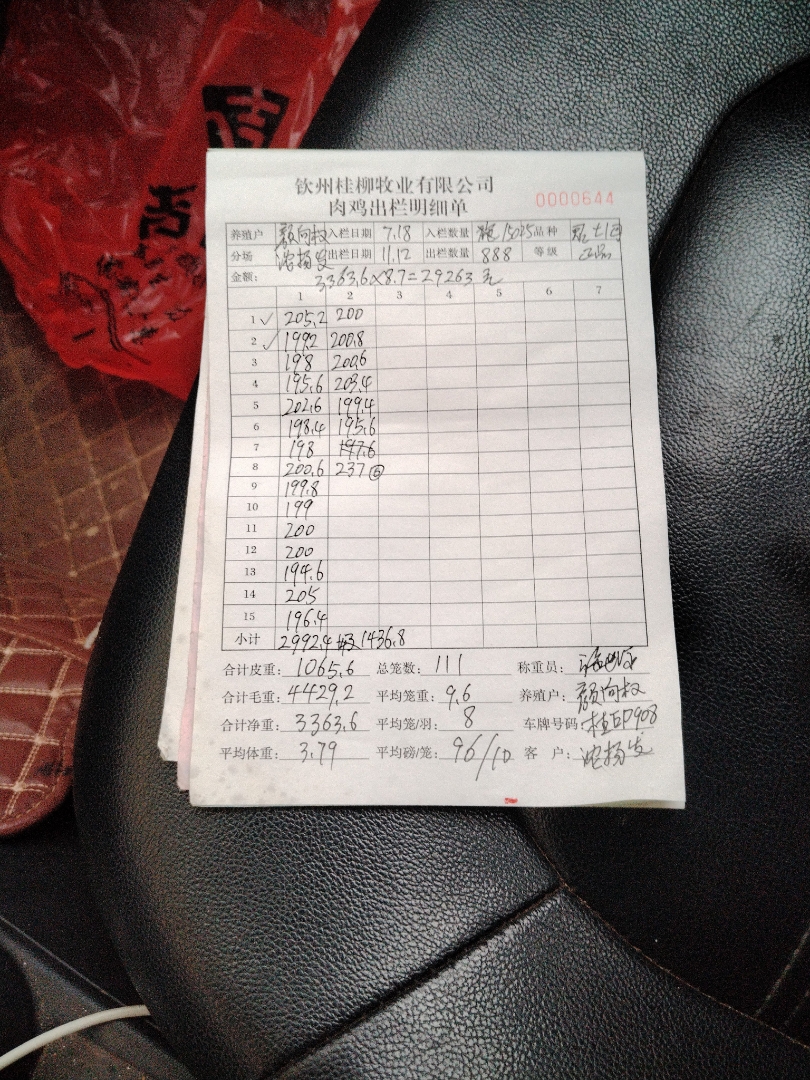 钦州桂柳牧业有限公司
肉鸡出栏明细单
0000644
养殖户 颜向权 入栏日期 7.18 入栏数量 15025 品种
分场 出栏日期 11.12 出栏数量 888 等级 正品
金额: 3363.6×8.7=29263元
1 2 3 4 5 6 7
1 ✓ 205.2 200
2 ✓ 199.2 200.8
3 198 200.6
4 195.6 203.4
5 202.6 199.4
6 198.4 195.6
7 198 197.6
8 200.6 237 ⑥
9 199.8
10 199
11 200
12 200
13 194.6
14 205
15 196.4
小计 2992.4 1436.8
合计皮重: 1065.6 总笼数: 111 称重员:
合计毛重: 4429.2 平均笼重: 9.6 养殖户: 颜向权
合计净重: 3363.6 平均笼/羽: 8 车牌号码: 桂EP908
平均体重: 3.79 平均磅/笼: 96/10 客 户: